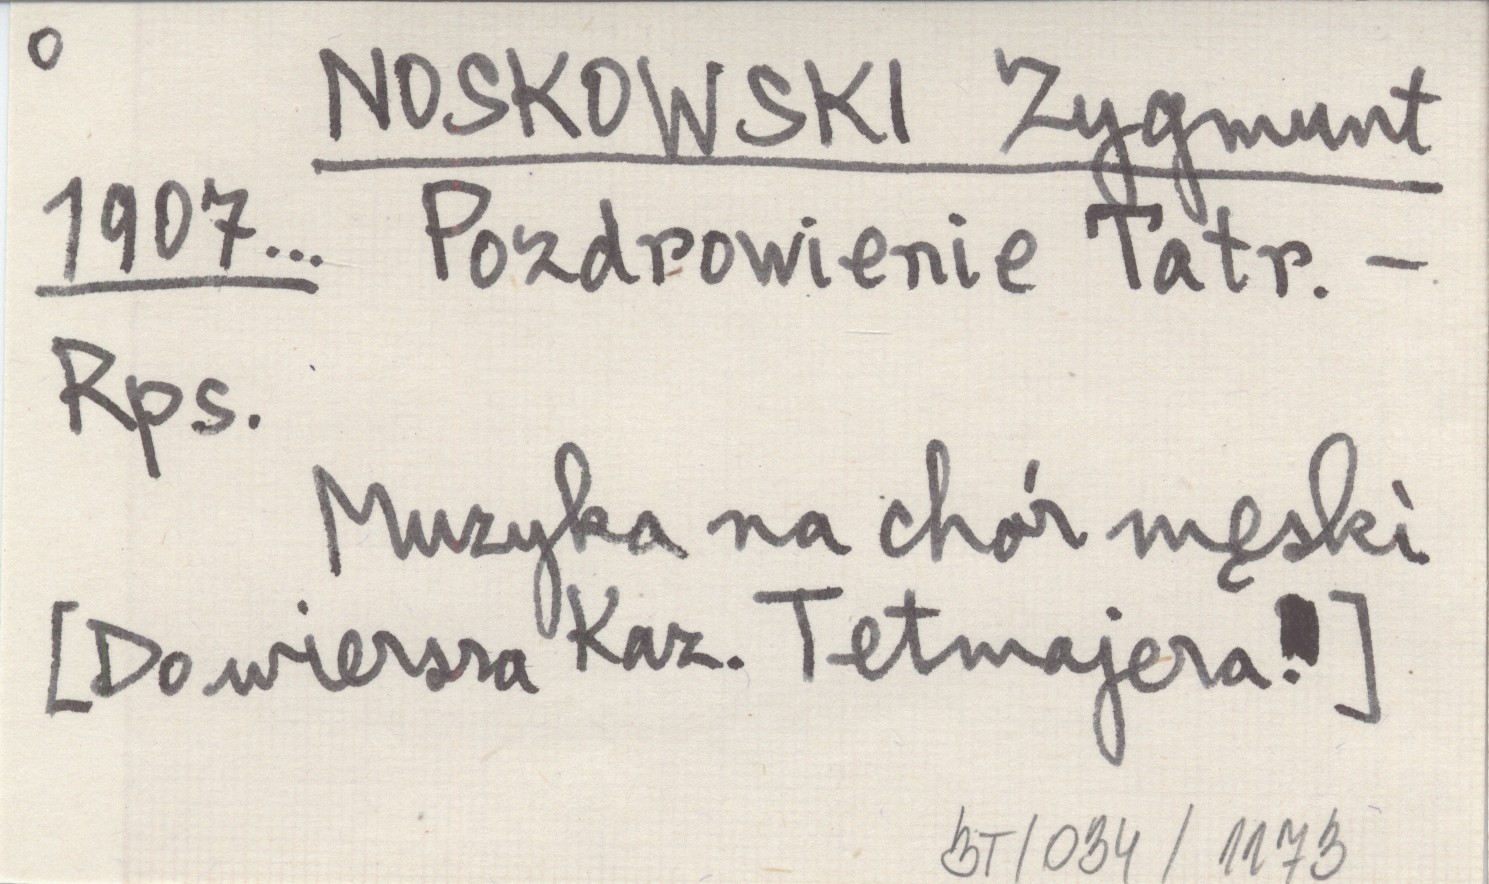 o
NOSKOWSKI Zygmunt
1907... Pozdrowienie Tatr. –
Rps.
Muzyka na chór męski
[Do wiersza Kaz. Tetmajera!]
BT/034/1173